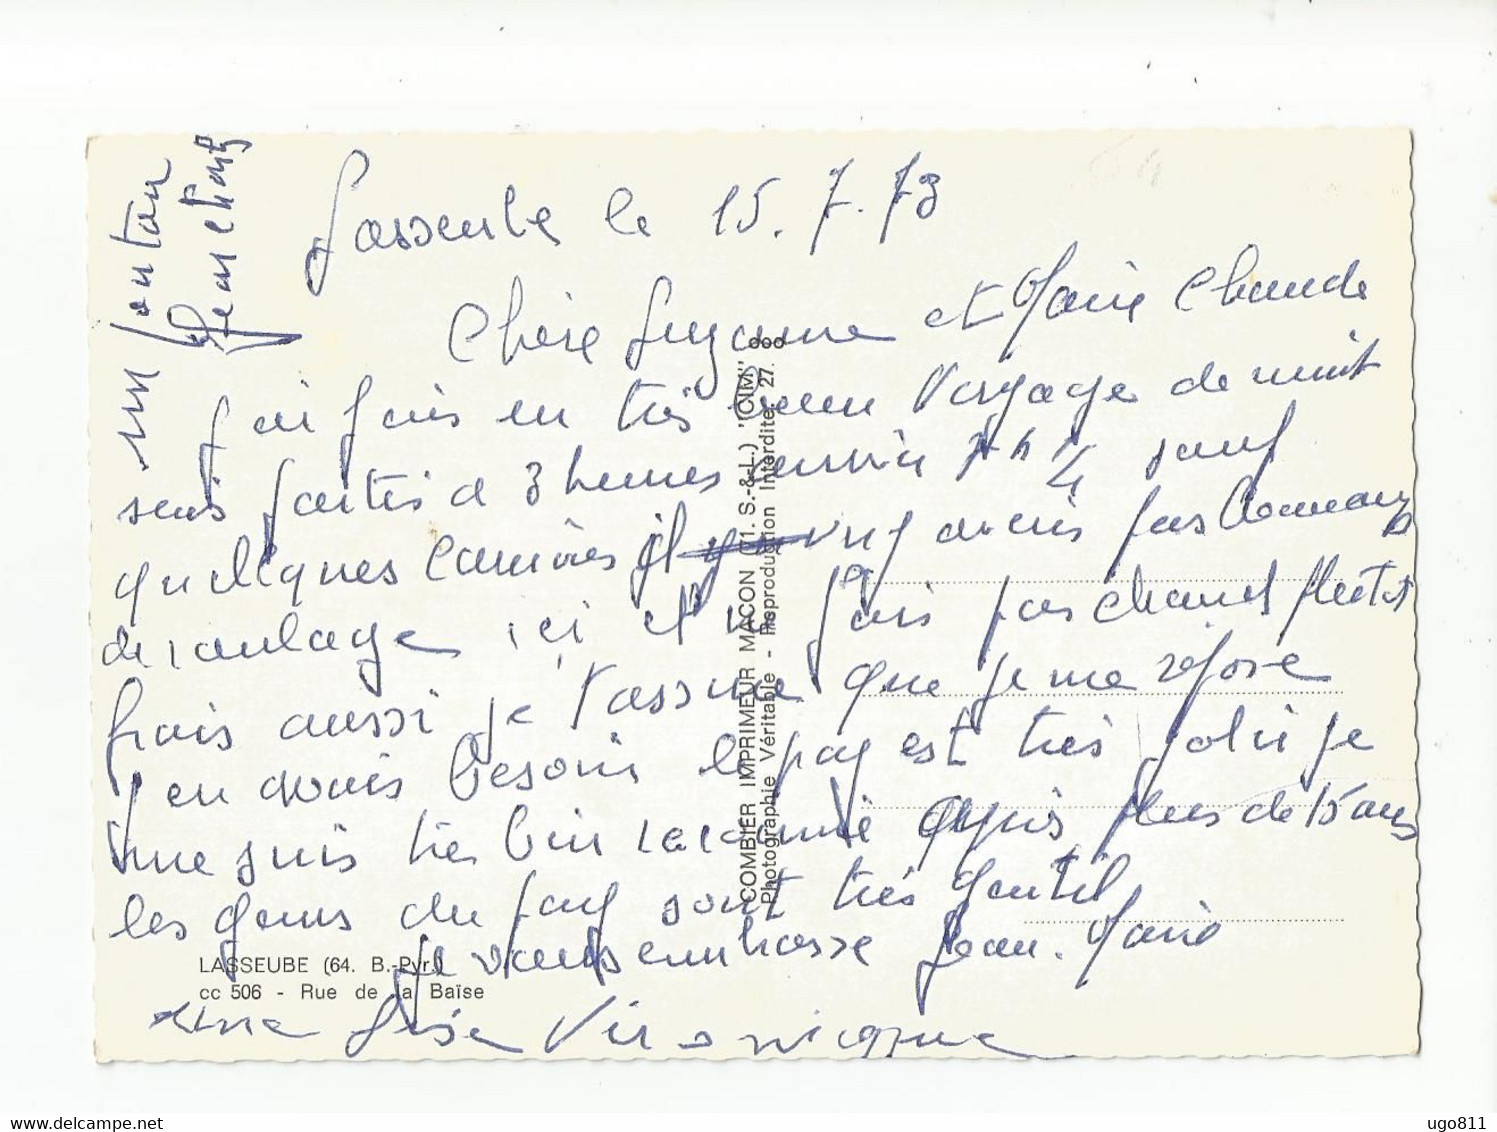 Lasseube le 15.7.73
Chère Suzanne et Marie Claude
j'ai fais un très bon voyage de nuit
suis partis a 3 heures arrivée 7 h 1/4 sauf
quelques camions il y avais pas beaucoup
de roulage ici il n fais pas chaud plutot
frais aussi je t'assure que je me repose
j'en avais besoin le pay est très joli je
me suis très bien depuis plus de 15 ans
les gens du pay sont très gentil
je vous embrasse Jean. Marie
Lise Véronique
un tonton
Jean
COMBIER IMPRIMEUR MACON (71. S.-&-L.) "CIM"
Photographie Véritable - Reproduction Interdite. 27.
LASSEUBE (64. B.-Pyr.)
cc 506 - Rue de la Baïse
ugo811